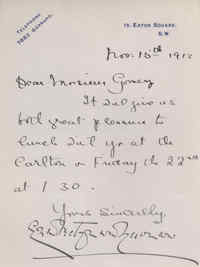 TELEPHONE
7953 GERRARD.
15, EATON SQUARE,
S.W.
Nov: 15th 1912
Dear Monsieur
It will give us
both great pleasure to
lunch with yo at the
Carlton on Friday the 22nd
at 1 30.
Yours Sincerely